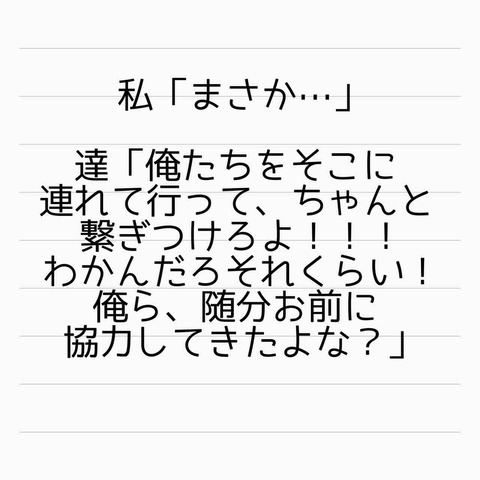 私「まさか…」
達「俺たちをそこに
連れて行って、ちゃんと
繋ぎつけろよ！！！
わかんだろそれくらい！
俺ら、随分お前に
協力してきたよな？」